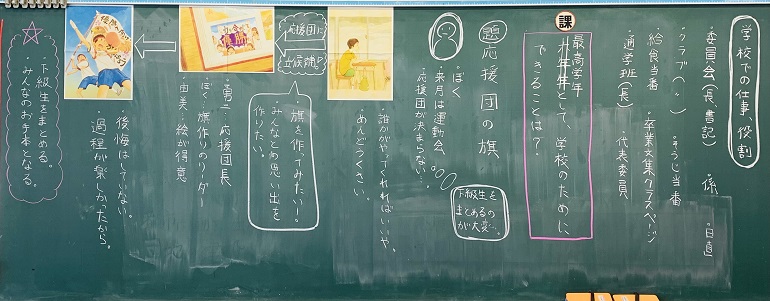 学校での仕事、役割
・委員会(長、書記)
・係
・日直
・クラブ(〃)
・そうじ当番
・給食当番
・卒業文集クラスページ
・通学班(長)
・代表委員
課
最高学年
六年生として、学校のために、
できることは?
題 応援団の旗
ぼく
・来月は運動会、
応援団が決まらない…。
下級生を
まとめるの
が大変…。
・誰かがやってくれればいいや。
めんどうくさい。
応援団に
立候補!?
・旗を作ってみたい!
みんなとの思い出を
作りたい。
優勝
・勇二…応援団長
・ぼく…旗作りのリーダー
・由美…絵が得意
・後悔はしていない。
過程が楽しかったから。
・下級生をまとめる。
・みんなのお手本となる。